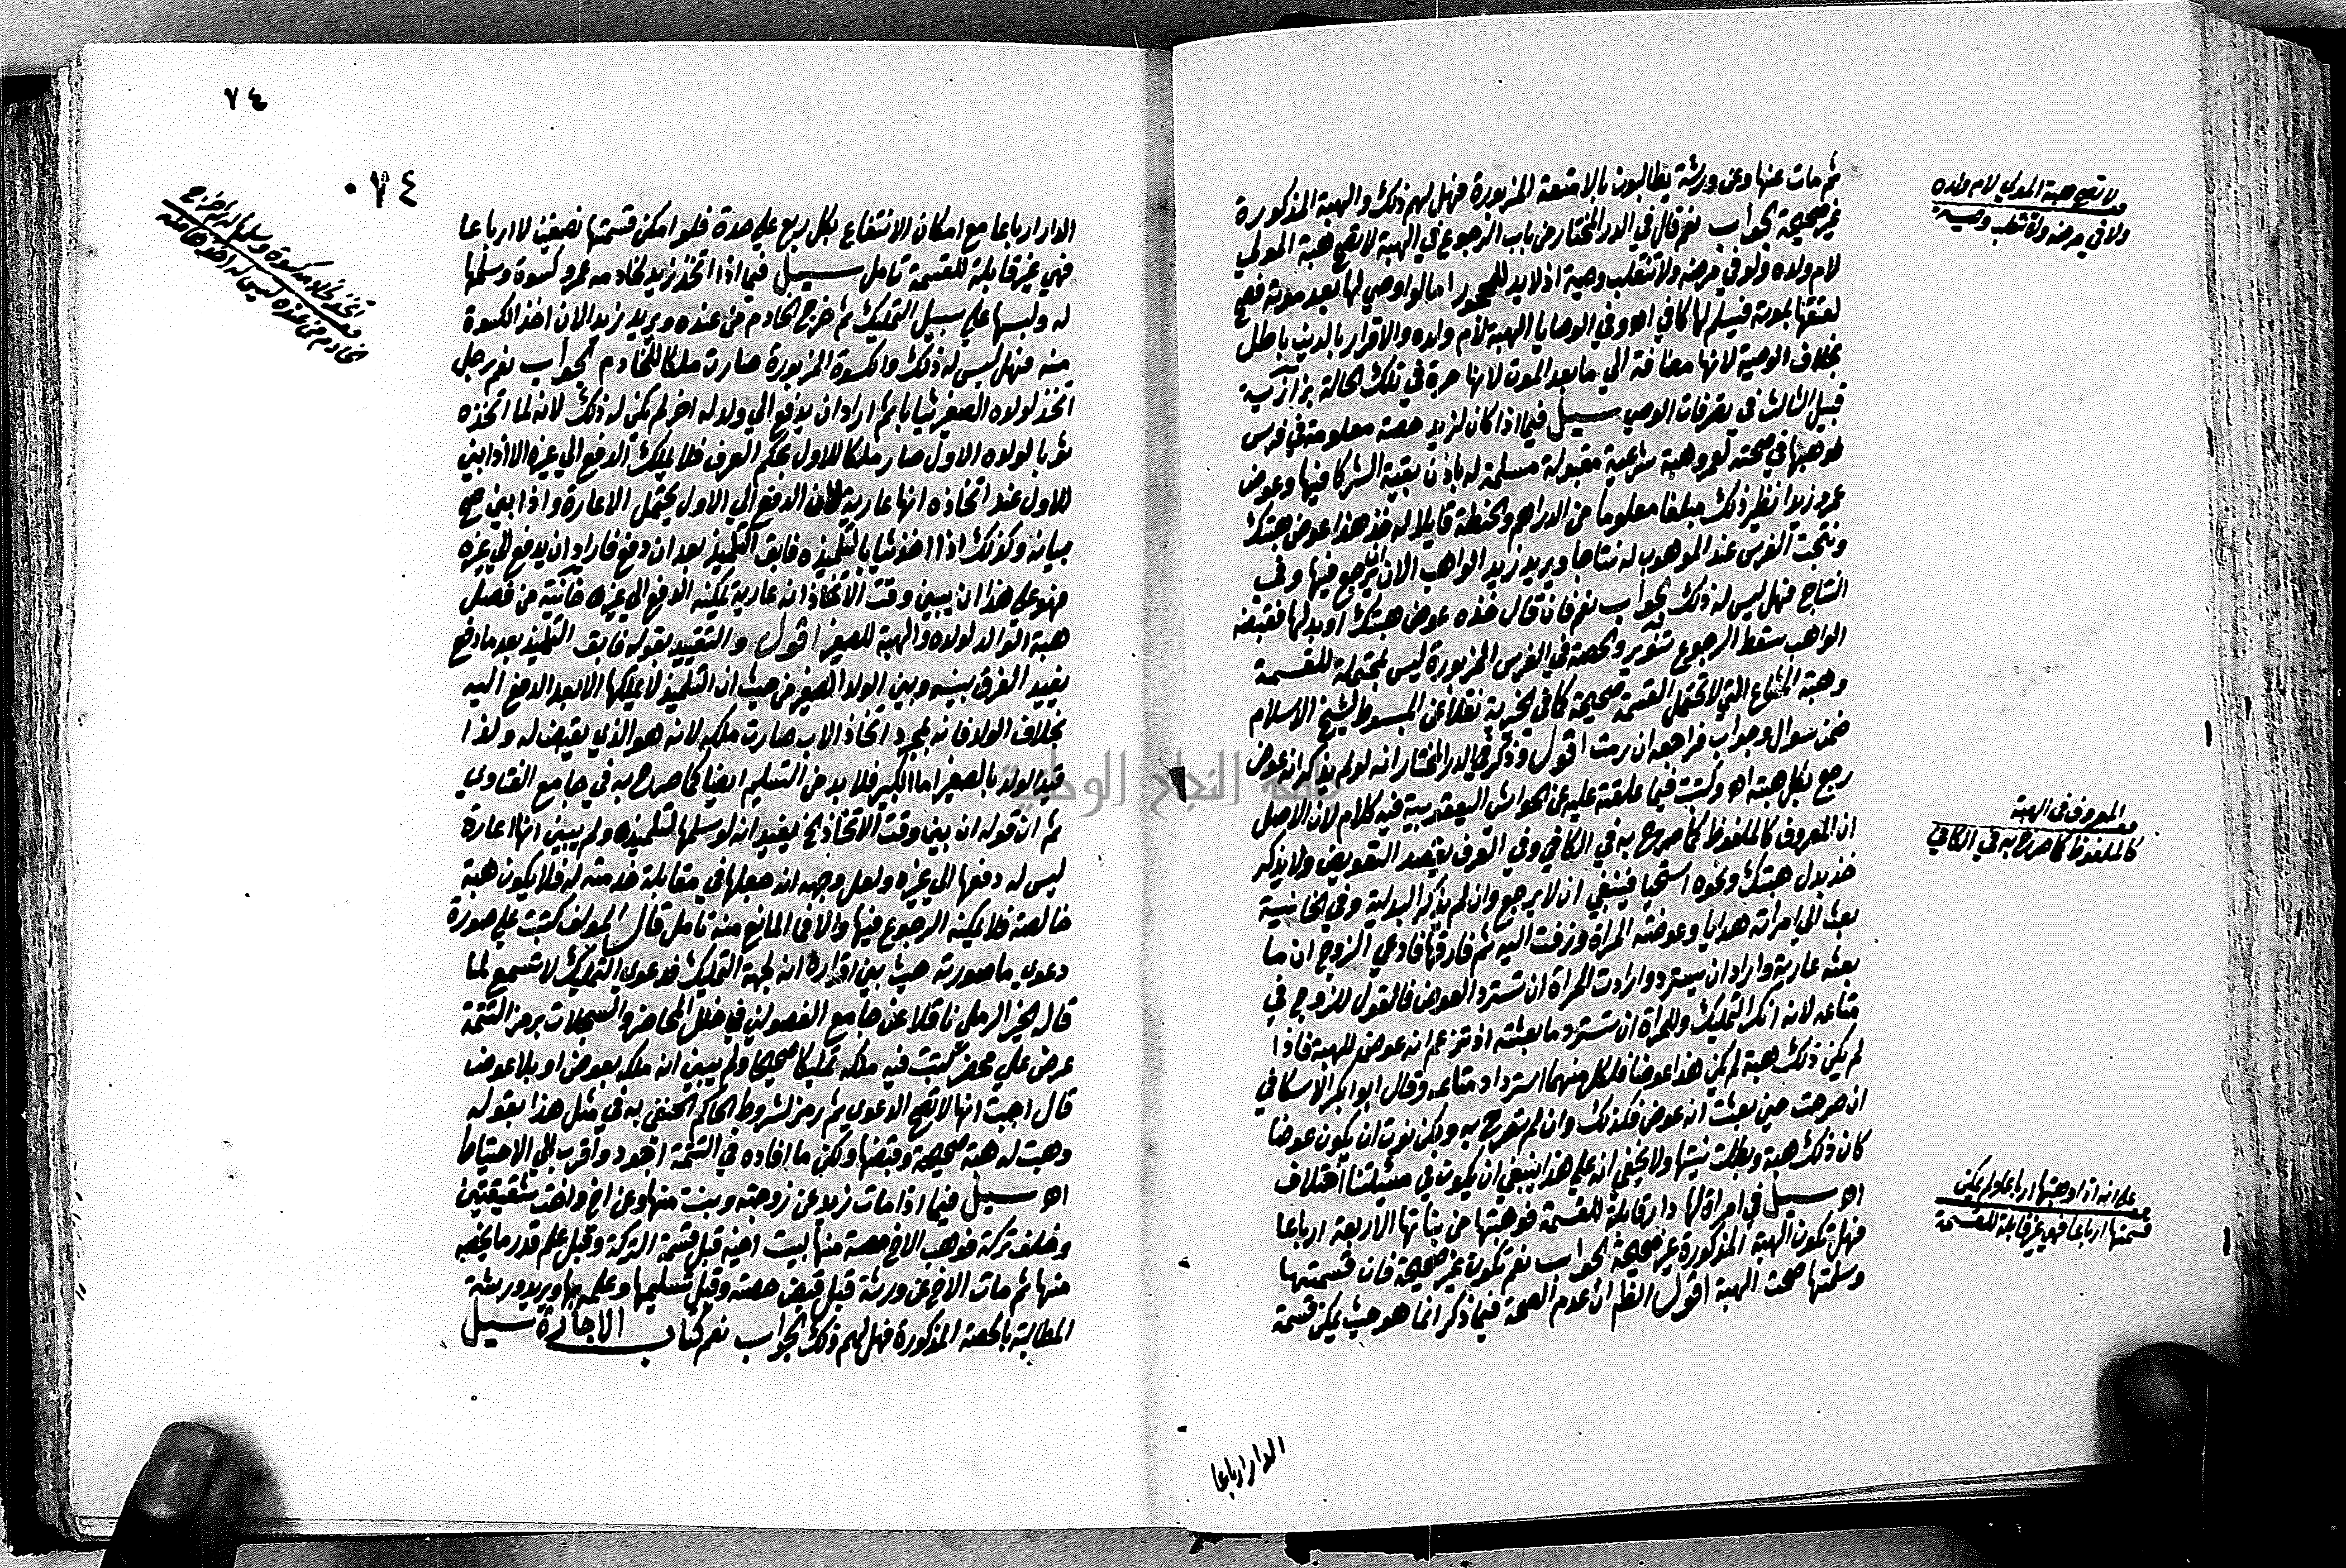 ثم مات عنها وعن ورثة يطالبون بالامتعة المزبورة فهل لهم ذلك والهبة المذكورة
غير صحيحة الجواب نعم قال في الدر المختار من باب الرجوع في الهبة لا تصح هبة المولي
لام ولده ولو في مرضه ولا تنقلب وصية اذ لا يد للمحجور اما لو اوصي لها بعد موته فصح
لعتقها بموته فيسلم لها كافي اهـ وفي الوصايا الهبة لام ولده والاقرار بالدين باطل
بخلاف الوصية لانها مضافة الي ما بعد الموت لانها حرة في تلك الحالة بزازية
قبيل الثالث في تصرفات الوصي سيل فيما اذا كان لزيد حصة معلومة في فرس
فوهبها في صحته لعمرو هبة شرعية مقبولة مسلمة له باذن بقية الشركا فيها وعوض
عمرو زيدا نظير ذلك مبلغا معلوما من الدراهم والحنطة قايلا له خذ هذا عوض هبتك
ونتجت الفرس عند الموهوب له نتاجا ويريد زيد الواهب الان الرجوع فيها وفي
النتاج فهل ليس له ذلك الجواب نعم فان قال خذه عوض هبتك او بدلها فقبضه
الواهب سقط الرجوع تنوير والحصة في الفرس المزبورة ليس بمحتملة للقسمة
وهبة المشاع التي لا تحتمل القسمة صحيحة كما في الخيرية نقلا عن المبسوط لشيخ الاسلام
ضمن سوال وجواب فراجعه ان رمت اقول وذكر في الدر المختار انه لو لم يذكر انه عوض
رجع بكل هبته اهـ وكتبت فيما علقته عليه عن الحواشي اليعقوبية فيه كلام لان الاصل
ان المعروف كالملفوظ كما صرح به في الكافي وفي العرف يقصد التعويض ولا يذكر
خذ بدل هبتك ونحوه استحيا فينبغي ان لا يرجع وان لم يذكر البدلية وفي الخانية
بعث الي امراته هدايا وعوضته المراة وزفت اليه ثم فارقها فادعي الزوج ان ما
بعثه عارية واراد ان يسترد وارادت المراة ان تسترد العوض فالقول للزوج في
متاعه لانه انكر التمليك وللمراة ان تسترد ما بعثته اذ تزعم انه عوض للهبة فاذا
لم يكن ذلك هبة لم يكن هذا عوضا فلكل منهما استرداد متاعه وقال ابو بكر الاسكافي
ان صرحت حين بعثت انه عوض فكذلك وان لم تصرح به ولكن نوت ان يكون عوضا
كان ذلك هبة وبطلت نيتها ولا يخفي انه علي هذا ينبغي ان يكون في مسئلتنا اختلاف
اهـ سيل في امراة لها دار قابلة للقسمة فوهبتها من بناتها الاربعة ارباعا
فهل تكون الهبة المذكورة غير صحيحة الجواب نعم تكون غير صحيحة فان قسمتها
وسلمتها صحت الهبة اقول الظ ان عدم الصحة فيما ذكر انما هو حيث يمكن قسمة
الدار ارباعا
لا تصح هبة المولي لام ولده
ولا في مرضه ولا تنقلب وصية
المعروف في الهبة
كالملفوظ كما صرح به في الكافي
علي انه اذا وهبتها ارباعا ولم يمكن
قسمتها ارباعا فهي غير قابلة للقسمة
٧٤
٠٧٤
الدار ارباعا مع امكان الانتفاع بكل ربع علي حدة فلو امكن قسمتها نصفين لا ارباعا
فهي غير قابلة للقسمة تامل سيل في اذا اتخذ زيد لخادمه عمرو كسوة وسلمها
له ولبسها علي سبيل التمليك ثم خرج الخادم من عنده ويريد زيد الان اخذ الكسوة
منه فهل ليس له ذلك والكسوة المزبورة صارت ملكا للخادم الجواب نعم رجل
اتخذ لولده الصغير ثيابا ثم اراد ان يدفع الي ولد له اخر لم يكن له ذلك لانه لما اتخذه
ثوبا لولده الاول صار ملكا للاول بحكم العرف فلا يملك الدفع الي غيره الا اذا بين
للاول عند اتخاذه انها عارية لان الدفع الي الاول يحتمل الاعارة واذا بين صح
بيانه وكذلك اذا اتخذ ثيابا لتلميذه فابق التلميذ بعد ان دفع فاراد ان يدفع الي غيره
فهو علي هذا ان يبين وقت الاتخاذ انه عارية يمكنه الدفع الي غيره خانية من فصل
هبة الوالد لولده والهبة للصغير اقول والتقييد بقوله فابق التلميذ بعد ما دفع
يفيد الفرق بينه وبين الولد الصغير من حيث ان التلميذ لا يملكها الا بعد الدفع اليه
بخلاف الولد فانه بمجرد اتخاذ الاب صارت ملكه لانه هو الذي يقبض له ولذا
قيد الولد بالصغير اما الكبير فلا بد من التسليم ايضا كما صرح به في جامع الفتاوي
ثم ان قوله ان بين وقت الاتخاذ الخ يفيد انه لو سلمها لتلميذه ولم يبين انها اعارة
ليس له دفعها الي غيره ولعل وجهه انه جعلها في مقابلة خدمته له فلا يكون هبة
خالصة فلا يمكنه الرجوع فيها والا فما المانع منه تامل قال المولف كتبت علي صورة
دعوي ما صورته حيث بين اقراره انه لجهة التمليك فدعوي التمليك لا تسمع لما
قاله الخير الرملي ناقلا عن جامع الفصولين في خلل المحاضر والسجلات برمز التتمة
عرض علي محضر كتب فيه ملكه تمليكا صحيحا ولم يبين انه ملكه بعوض او بلا عوض
قال اجبت انها لا تصح الدعوي ثم رمز لشروط الحاكم اكتفي به في مثل هذا بقوله
وهبت له هبة صحيحة وقبضها ولكن ما افاده في التتمة اجود واقرب الي الاحتياط
اهـ سيل فيما اذا مات زيد عن زوجته وبنت منها وعن اخ واخت شقيقتين
وخلف تركة فوهب الاخ حصة منها لبنت اخيه قبل قسمة التركة وقبل علم قدر ما يخصه
منها ثم مات الاخ عن ورثة قبل قبض حصته وقبل تسليمها وعلمه بها ويريد ورثته
المطالبة بالحصة المذكورة فهل لهم ذلك الجواب نعم كتاب الاجارة سيل